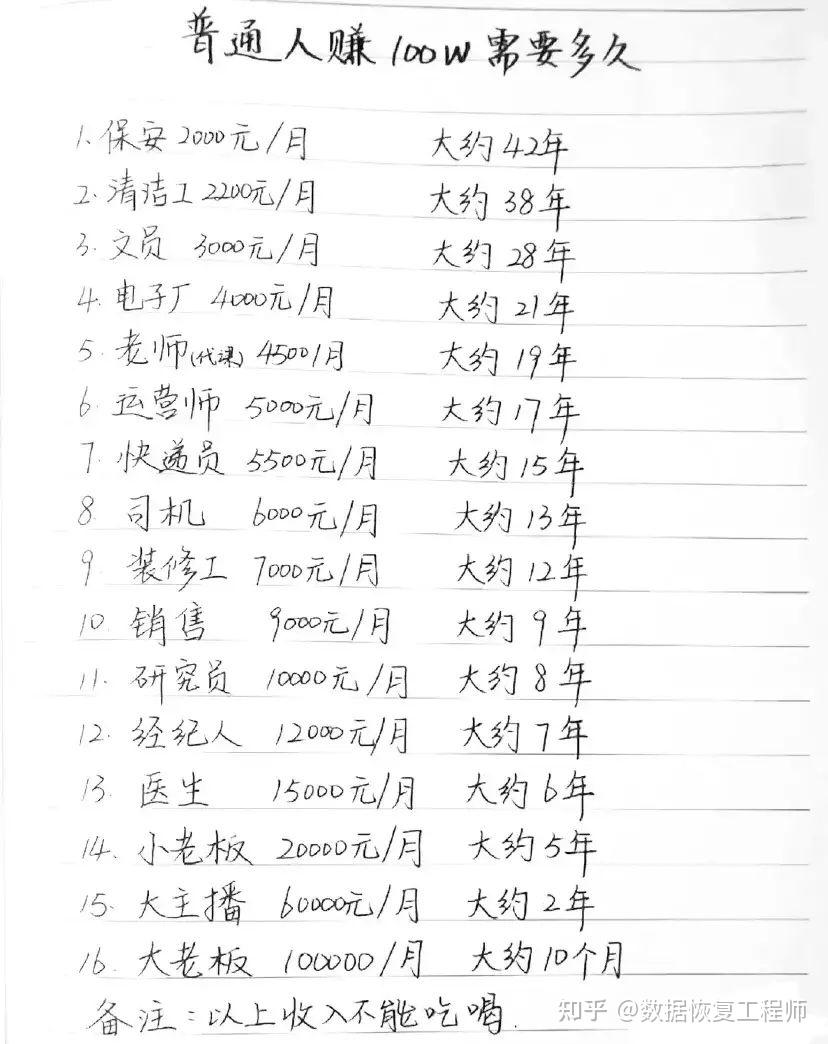 普通人赚100W需要多久
1. 保安 2000元/月 大约42年
2. 清洁工 2200元/月 大约38年
3. 文员 3000元/月 大约28年
4. 电子厂 4000元/月 大约21年
5. 老师(代课) 4500/月 大约19年
6. 运营师 5000元/月 大约17年
7. 快递员 5500元/月 大约15年
8. 司机 6000元/月 大约13年
9. 装修工 7000元/月 大约12年
10. 销售 9000元/月 大约9年
11. 研究员 10000元/月 大约8年
12. 经纪人 12000元/月 大约7年
13. 医生 15000元/月 大约6年
14. 小老板 20000元/月 大约5年
15. 大主播 60000元/月 大约2年
16. 大老板 100000/月 大约10个月
备注:以上收入不能吃喝.
知乎 @数据恢复工程师